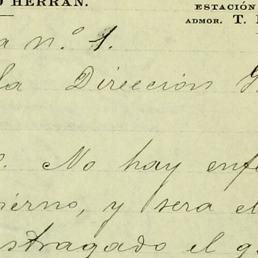 O HERRAN.
ESTACIÓN
ADMOR. T.
a n.º 1.
la Direccion G
. No hay enf
ierno, y sera el
stragado el g